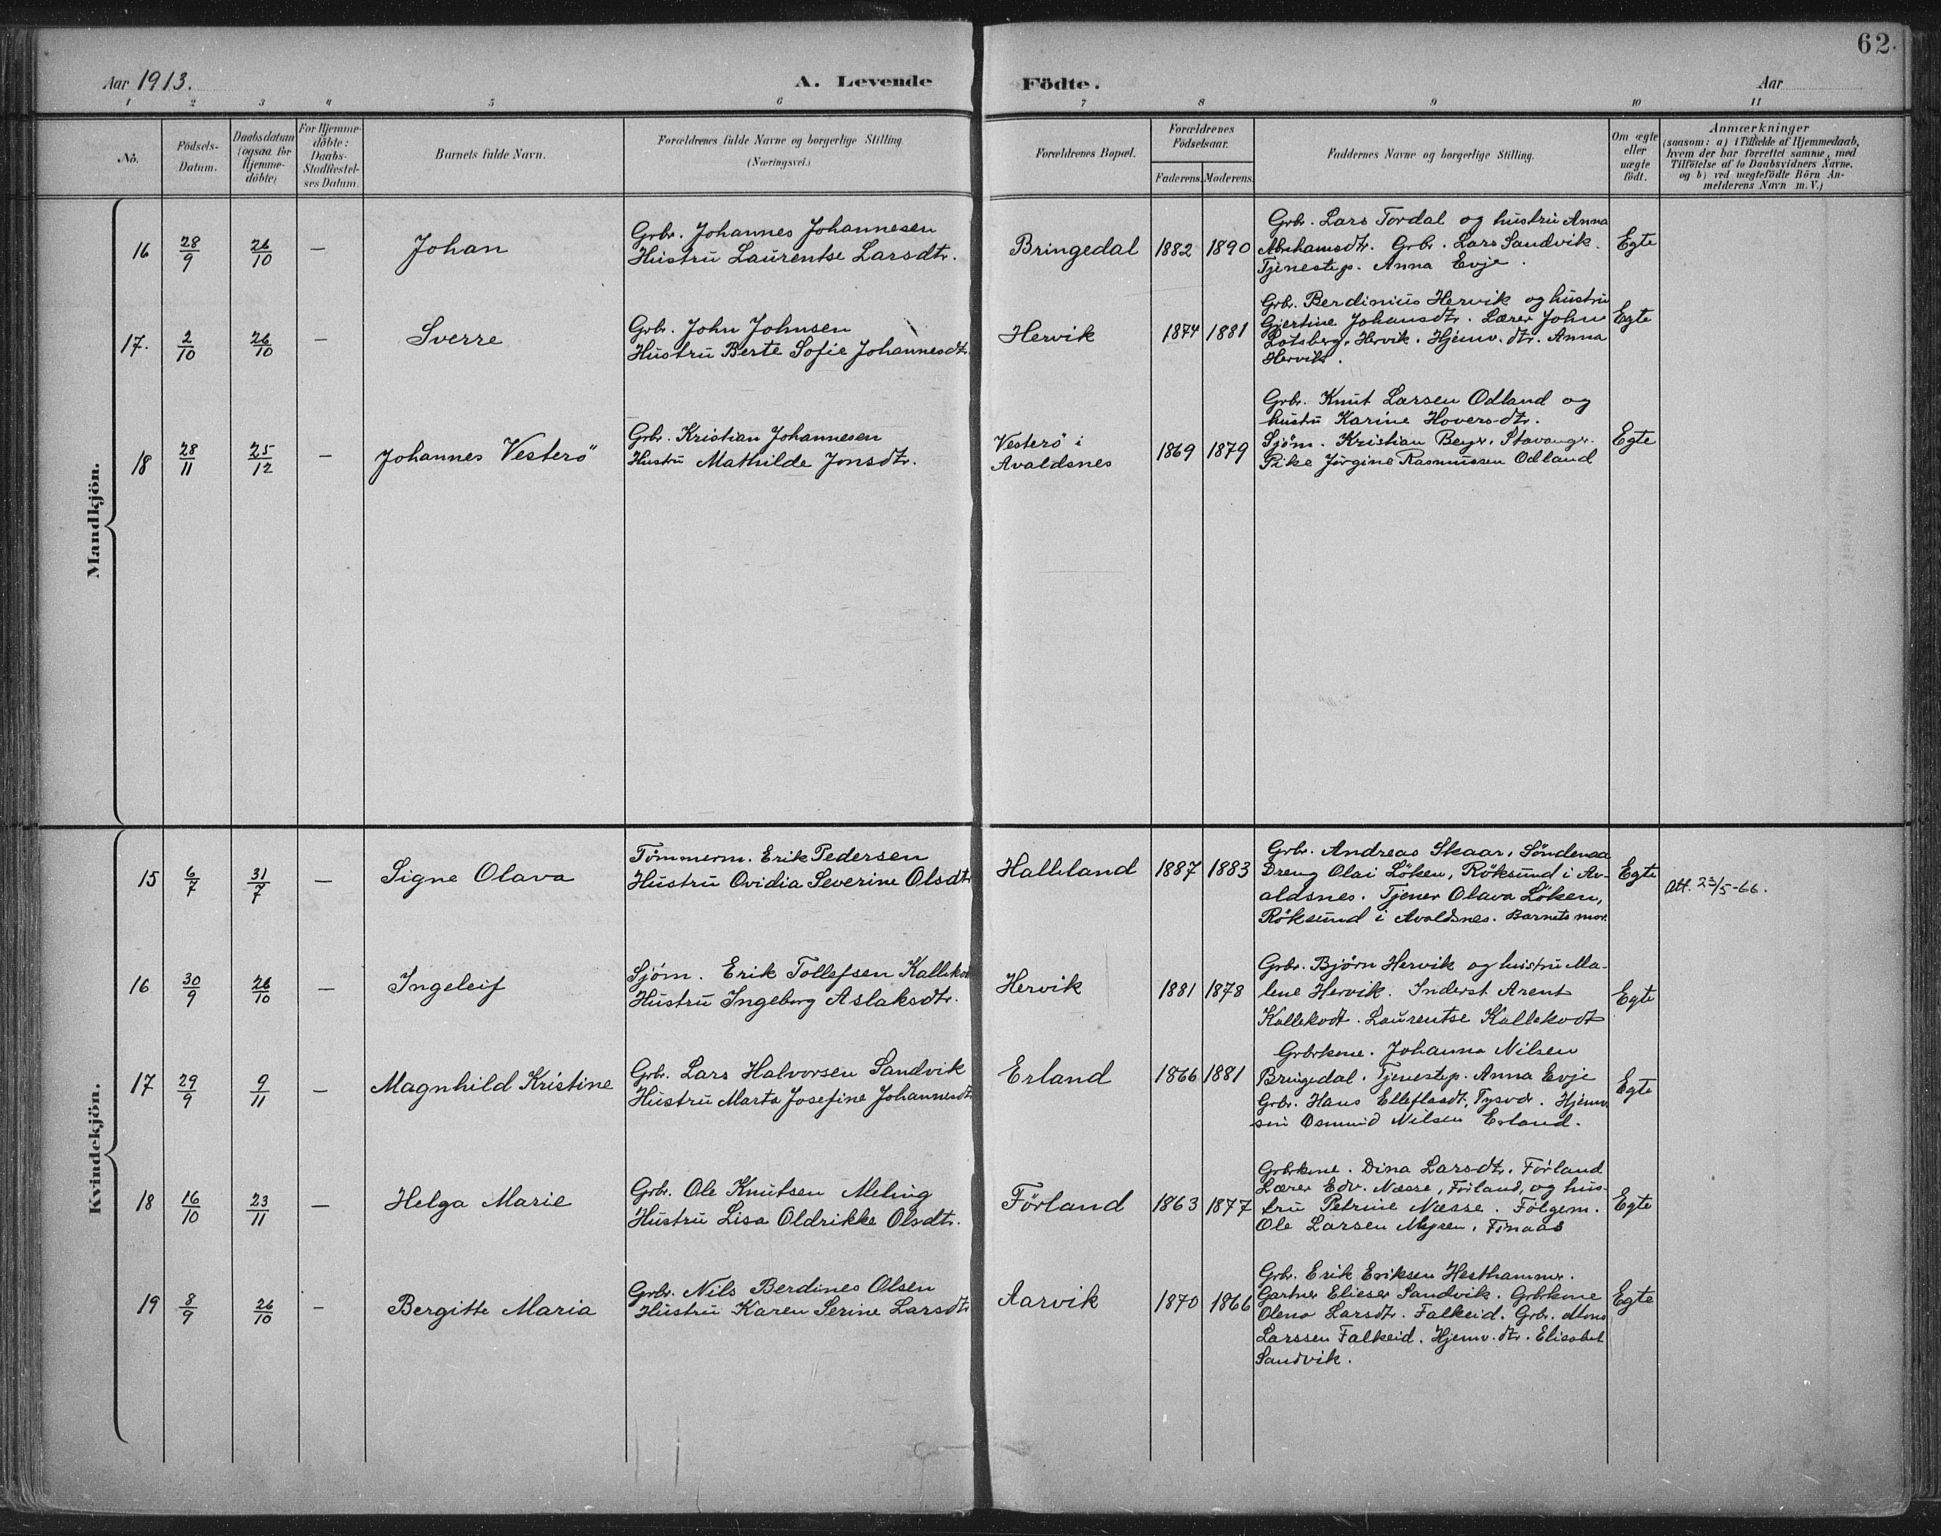 62.
Aar 1913. A. Levende Födte. Aar
1 2 3 4 5 6 7 8 9 10 11
No. Födsels-Datum. Daabsdatum (ogsaa for Hjemme-döbte) For Hjemme-döbte: Daabs-Stadfæstel-ses Datum. Barnets fulde Navn. Forældrenes fulde Navne og borgerlige Stilling (Næringsvei.) Forældrenes Bopæl. Forældrenes Födselsaar. Faderens. Moderens. Faddernes Navne og borgerlige Stilling. Om ægte eller uægte födt. Anmærkninger (saasom: a) i Tilfælde af Hjemmedaab, hvem der har forrettet samme, med Tilföielse af to Daabsvidners Navne, og b) ved uægtefödte Börn An-melderens Navn m. V.)
Mandkjön.
16 28/9 26/10 — Johan
Grbr. Johannes Johannesen
Hustru Laurentse Larsdtr.
Bringedal 1882 1890
Grbr. Lars Tordal og hustru Anna
Abrahamsdtr. Grbr. Lars Sandvik.
Tjenestep. Anna Evje.
Egte
17. 2/10 26/10 — Sverre
Grbr. John Johnsen
Hustru Berte Sofie Johannesdtr.
Hervik 1874 1881
Grbr. Berdinius Hervik og hustru
Gjertine Johansdtr. Lærer John
Lotsberg, Hervik. Hjemv. dtr. Anna
Hervik.
Egte
18 28/11 25/12 — Johannes Vesterö
Grbr. Kristian Johannesen
Hustru Mathilde Jonsdtr.
Vesterö i
Avaldsnes
1869 1879
Grbr. Knut Larsen Odland og
hustru Karine Hoversdtr.
Sjöm. Kristian Beyer, Stavanger.
Pike Jörgine Rasmussen Odland
Egte
Kvindekjön.
15 6/7 31/7 — Signe Olava
Tømmerm. Erik Pedersen
Hustru Ovidia Severine Olsdtr
Halleland 1887 1883
Grbr. Andreas Skaar, Söndenaa
Dreng Olai Löken, Röksund i Av-
aldsnes. Tjener Olava Löken,
Röksund i Avaldsnes. Barnets mor.
Egte
Att. 23/5-66.
16 30/9 26/10 — Ingeleif
Sjøm. Erik Tollefsen
Hustru Ingeborg Aslaksdtr.
Hervik 1881 1878
Grbr. Bjørn Hervik og hustru Ma-
lene Hervik. Inderst Arent
Kallekodt. Laurentse Kallekodt
Egte
17 29/9 9/11 — Magnhild Kristine
Grbr. Lars Halvorsen Sandvik
Hustru Marta Josefine Johannesdtr
Erland 1866 1881
Grbrkone. Johanna Nilsen
Bringedal. Tjenestep. Anna Evje
Grbr. Hans, Tysvær. Hjemv.
sön Osmund Nilsen Erland.
Egte
18 16/10 23/11 — Helga Marie
Grbr. Ole Knutsen Meling
Hustru Lisa Oldrikke Olsdtr.
Förland 1863 1877
Grbrkone. Dina Larsdtr. Förland
Lærer Edv. Næsse, Förland, og hus-
tru Petrine Næsse. Fölgem.
Ole Larsen Myren, Finaas
Egte
19 8/9 26/10 — Bergitte Maria
Grbr. Nils Berdines Olsen
Hustru Karen Serine Larsdtr
Aarvik 1870 1866
Grbr. Erik Eriksen Hesthammer.
Gartner Elieser Sandvik. Grbrkone
Olena Larsdtr. Falkeid. Grbr.
Larssen Falkeid. Hjemv. dtr. Elisabet
Sandvik.
Egte